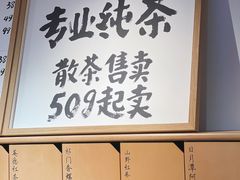 专业纯茶
散茶售卖
50g起卖
英德红茶
祁门香螺
山野红茶
日月潭阿